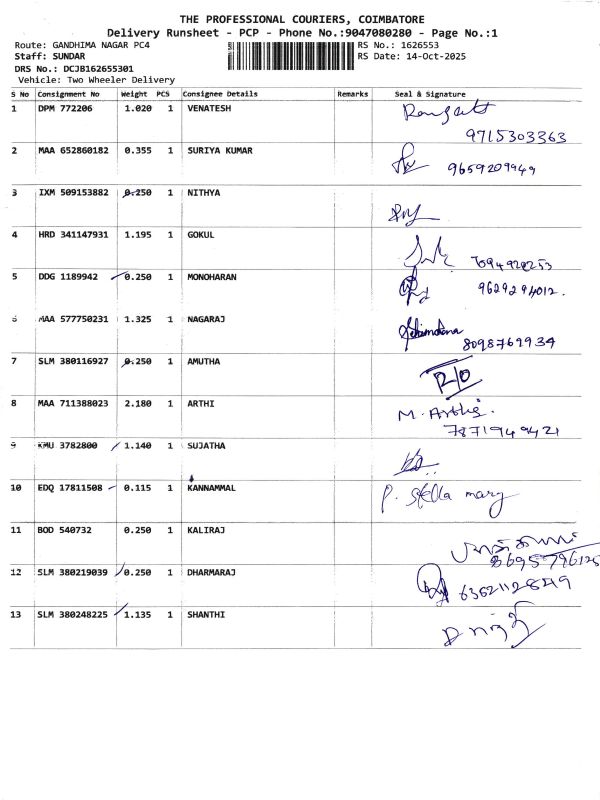 THE PROFESSIONAL COURIERS, COIMBATORE
Delivery Runsheet - PCP - Phone No.:9047080280 - Page No.:1
Route: GANDHIMA NAGAR PC4 RS No.: 1626553
Staff: SUNDAR RS Date: 14-Oct-2025
DRS No.: DCJB162655301
Vehicle: Two Wheeler Delivery
S No Consignment No Weight PCS Consignee Details Remarks Seal & Signature
1 DPM 772206 1.020 1 VENATESH
9715303363
2 MAA 652860182 0.355 1 SURIYA KUMAR
9659209949
3 IXM 509153882 0.250 1 NITHYA
4 HRD 341147931 1.195 1 GOKUL
5 DDG 1189942 0.250 1 MONOHARAN
9629294012.
6 MAA 577750231 1.325 1 NAGARAJ
8098769934
7 SLM 380116927 0.250 1 AMUTHA R/O
8 MAA 711388023 2.180 1 ARTHI M. Arthi.
7871949421
9 KMU 3782800 1.140 1 SUJATHA
10 EDQ 17811508 0.115 1 KANNAMMAL P. stella mary
11 BOD 540732 0.250 1 KALIRAJ
8695796125
12 SLM 380219039 0.250 1 DHARMARAJ
13 SLM 380248225 1.135 1 SHANTHI